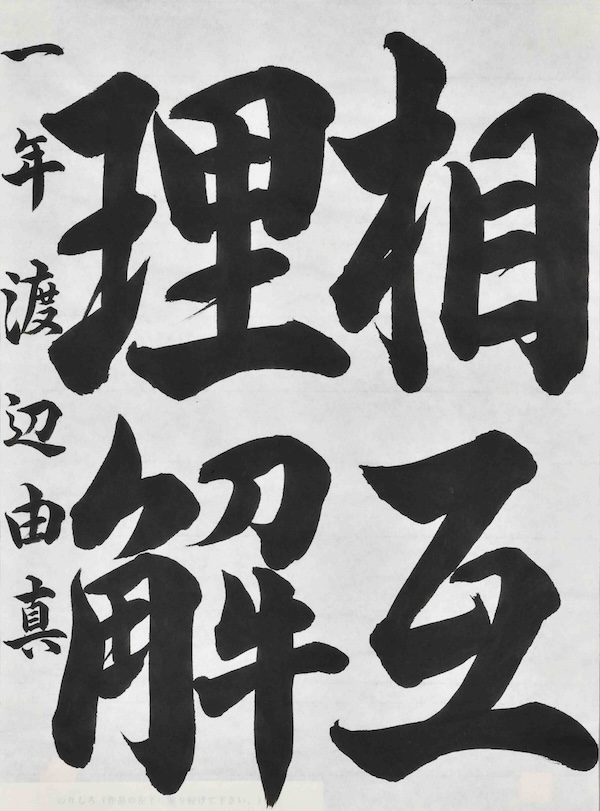 相互
理解
一年 渡辺由真